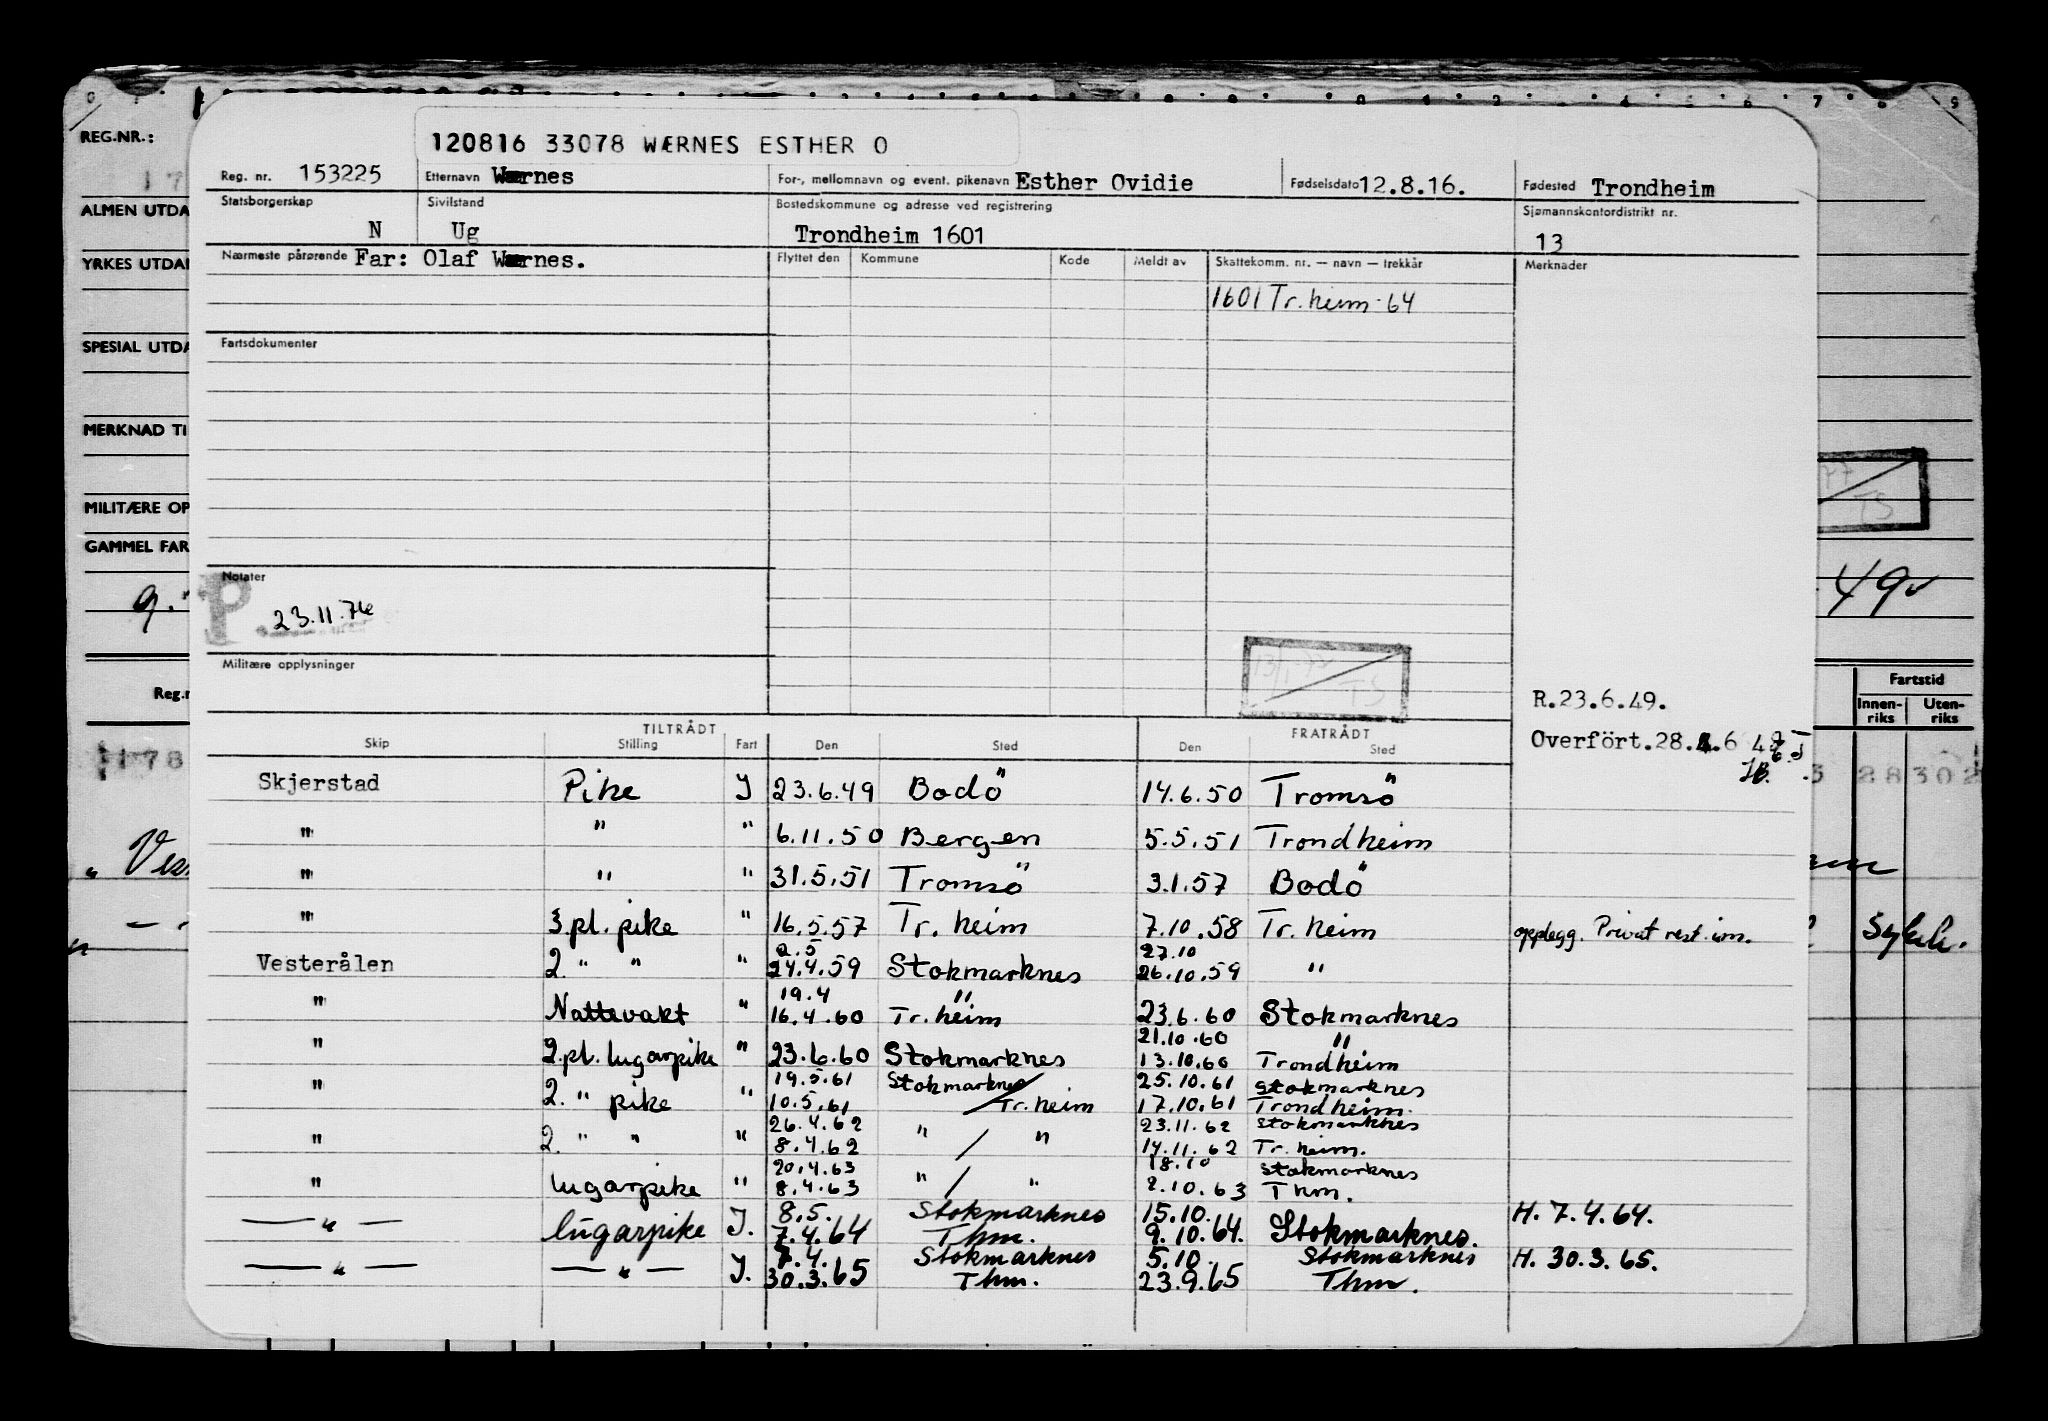 REG.NR.:
ALMEN UTDA
YRKES UTDAN
SPESIAL UTDA
MERKNAD TI
MILITÆRE OP
GAMMEL FAR
Reg.n
120816 33078 WÆRNES ESTHER O
Reg. nr. 153225 Etternavn Wærnes For-, mellomnavn og event. pikenavn Esther Ovidie Fødselsdato 12.8.16. Fødested Trondheim
Statsborgerskap N Sivilstand Ug Bostedskommune og adresse ved registrering Trondheim 1601 Sjømannskontordistrikt nr. 13
Nærmeste pårørende Far: Olaf Wærnes. Flyttet den Kommune Kode Meldt av Skattekomm. nr. — navn — trekkår Merknader
1601 Tr.heim-64
Fartsdokumenter
Notater
P 23.11.76
Militære opplysninger
TS
R.23.6.49.
Overfört.28.6
TILTRÅDT FRATRÅDT
Skip Stilling Fart Den Sted Den Sted
Skjerstad Pike I 23.6.49 Bodö 14.6.50 Tromsö
" " " 6.11.50 Bergen 5.5.51 Trondheim
" " " 31.5.51 Tromsö 3.1.57 Bodö
" 3.pl. pike " 16.5.57 Tr. heim 7.10.58 Tr. heim opplegg. Privat rest. inn.
2.5 27.10
Vesterålen 2. " " " 24.4.59 Stokmarknes 26.10.59 "
19.4 "
" Nattevakt " 16.4.60 Tr. heim 23.6.60 Stokmarknes
21.10.60 "
" 2.pl. lugarpike " 23.6.60 Stokmarknes 13.10.60 Trondheim
19.5.61 Stokmarknes 25.10.61 Stokmarknes
" 2. " pike " 10.5.61 / Tr. heim 17.10.61 Trondheim.
26.4.62 23.11.62 Stokmarknes
" 2. " " " 8.4.62 " / " 14.11.62 Tr. heim.
20.4.63 18.10 Stokmarknes
" lugarpike " 8.4.63 " / " 2.10.63 Thm.
8.5. Stokmarknes 15.10. H. 7.4.64.
— " — lugarpike I. 7.4.64 Thm. 9.10.64. Stokmarknes.
7.4. Stokmarknes 5.10. Stokmarknes H. 30.3.65.
— " — — " — I. 30.3.65 Thm. 23.9.65 Thm.
TS
49
Fartstid
Innen-riks Uten-riks
28302
Sykeh.